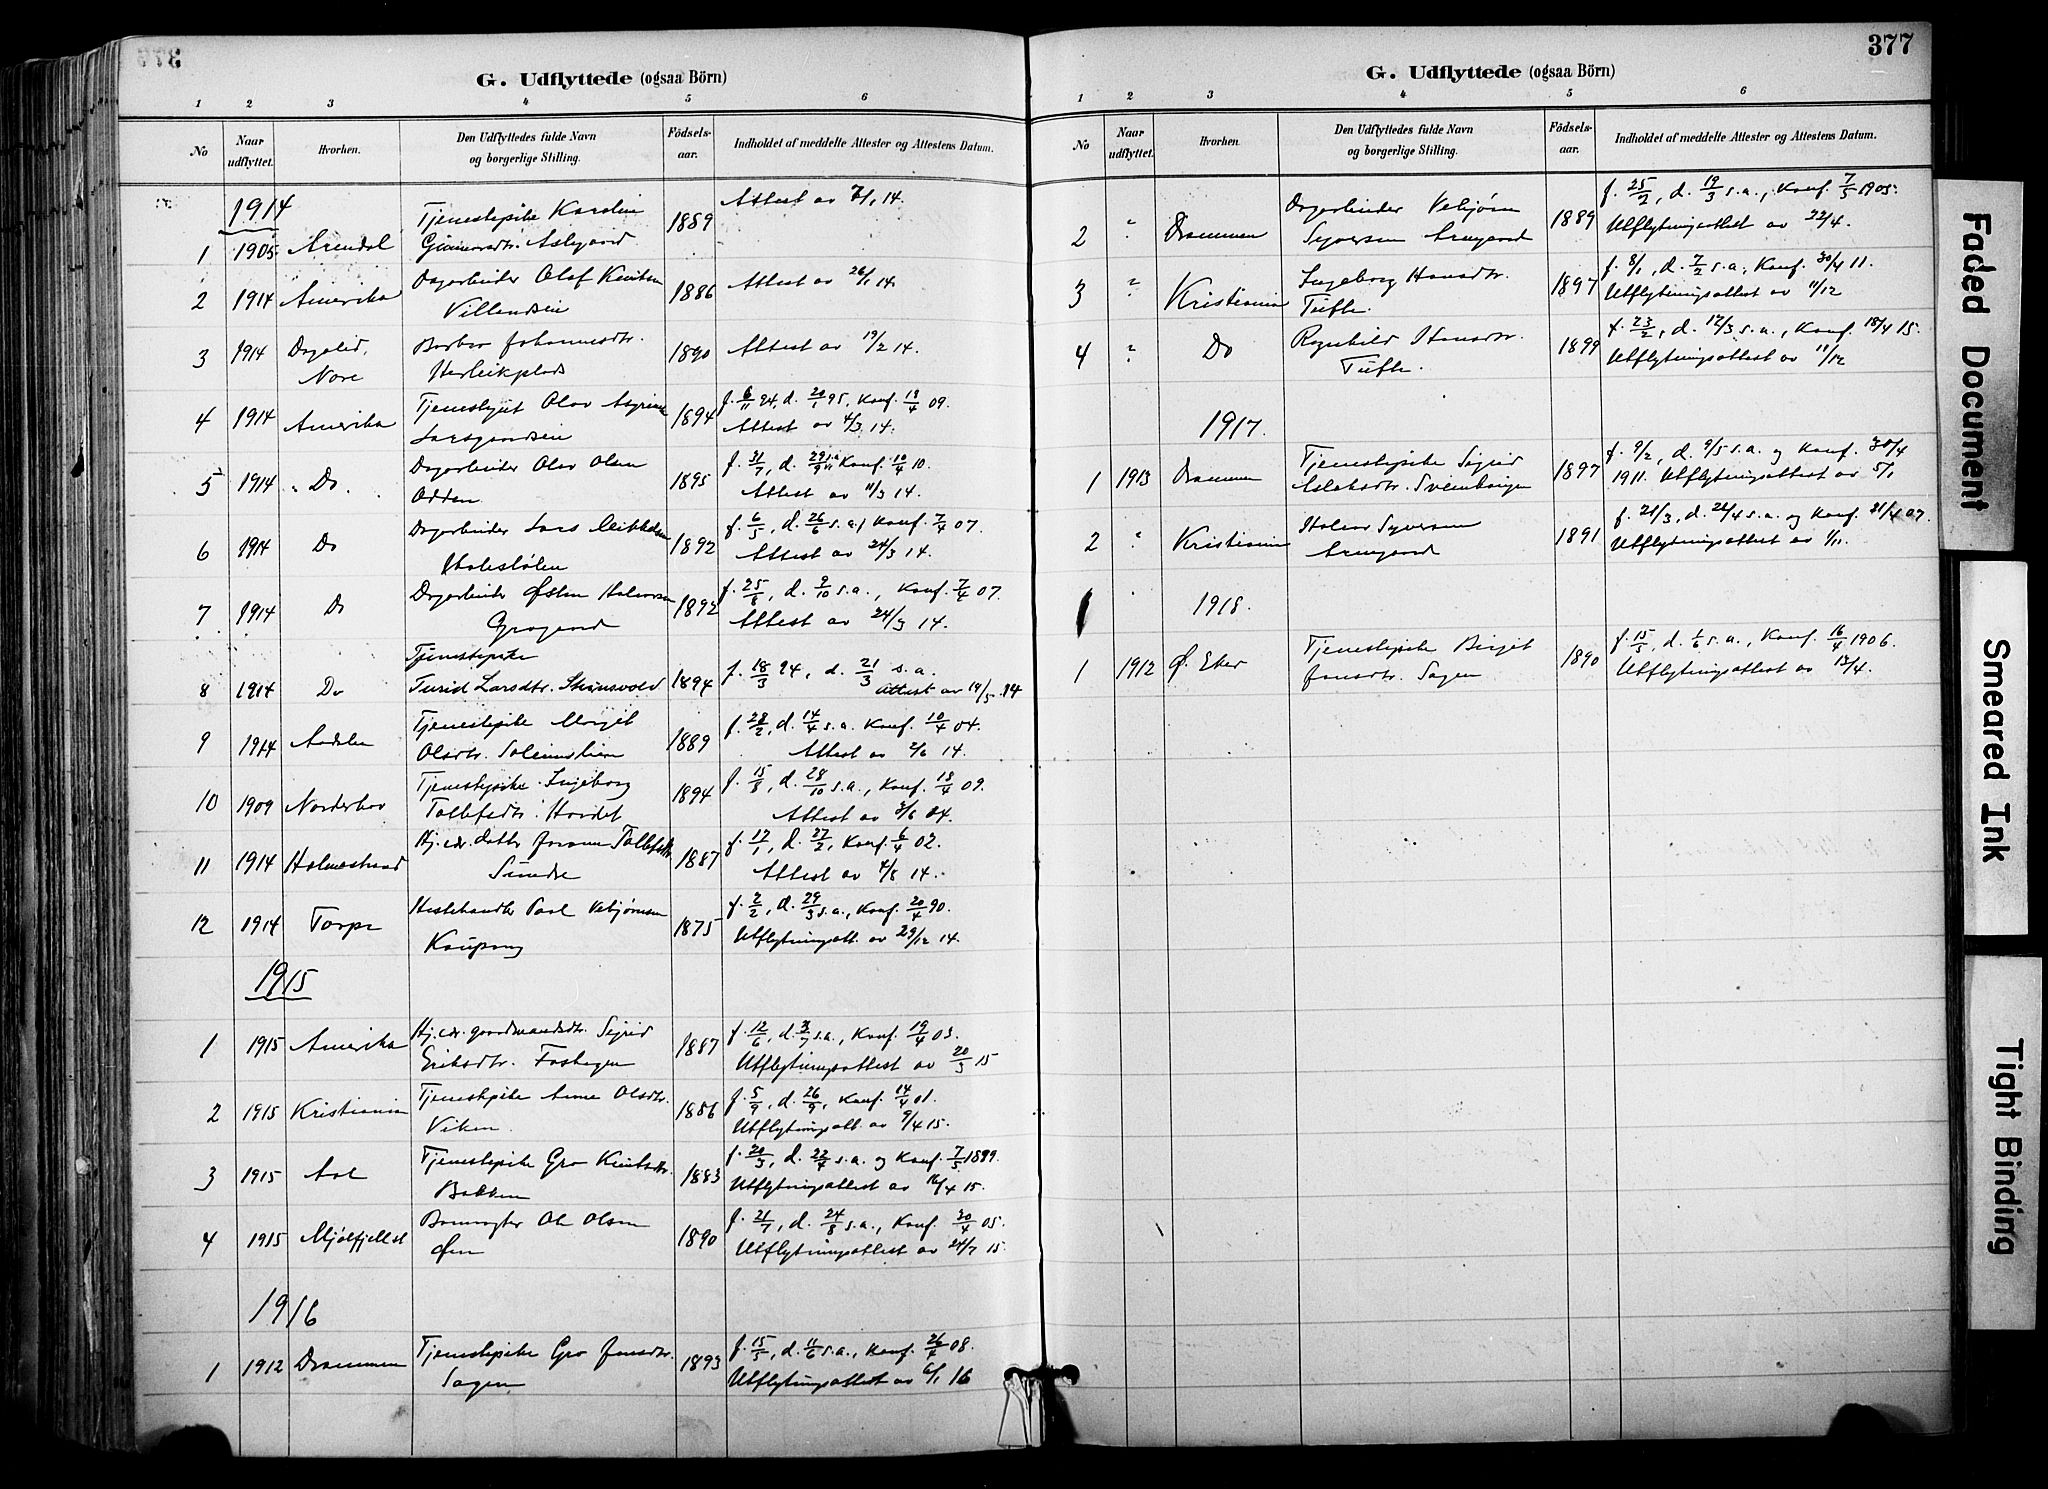 G. Udflyttede (ogsaa Börn)
1 2 3 4 5 6
No
Naar udflyttet.
Hvorhen.
Den Udflyttedes fulde Navn og borgerlige Stilling.
Födsels-aar.
Indholdet af meddelte Attester og Attestens Datum.
1914
1 1905 Arendal Tjenestepike Karolin Gunnersdtr. 1889 Attest av 7/1 14.
2 1914 Amerika Dagarbeider Olaf Knutsen Villandseie 1886 Attest av 26/1 14.
3 1914 Dagalid, Nore Barbro Johannesdtr. Herleikplads 1890 Attest av 19/2 14.
4 1914 Amerika Tjenestegut Olav 1894 f. 6/11 94, d. 20/1 95, Konf. 18/4 09.
Attest av 4/3 14.
5 1914 " Do. Dagarbeider Olav Olsen Odden 1895 f. 31/7, d. 29/9 s.a. Konf. 10/4 10.
Attest av 11/3 14.
6 1914 Do Dagarbeider Lars 1892 f. 6/5, d. 26/6 s.a., Konf. 7/4 07.
Attest av 24/3 14.
7 1914 Do Dagarbeider Østen Halvorsen 1892 f. 25/8, d. 9/10 s.a., Konf. 7/4 07.
Attest av 24/3 14.
8 1914 Do Tjenestepike Turid Larsdtr. Strønsvold 1894 f. 18/3 94, d. 21/3 s.a.
Attest av 19/5 14
9 1914 Aadalen Tjenestepike Margit Olsdtr. 1889 f. 28/2, d. 14/4 s.a. Konf. 10/4 04.
Attest av 2/6 14.
10 1909 Norderhov Tjenestepike Ingeborg Tollefsdtr. Hovdet 1894 f. 15/8, d. 28/10 s.a., Konf. 18/4 09.
Attest av 3/6 04.
11 1914 Holmestrand Hj.vær. datter Joran Tollefsdtr. Sundre 1887 f. 17/1, d. 27/2, Konf. 6/4 02.
Attest av 4/8 14.
12 1914 Torpe Hestehandler Paal Vebjørnsen Kaupang 1875 f. 2/2, d. 29/3 s.a., Konf. 20/4 90.
Utflytningsatt. av 29/12 14.
1915
1 1915 Amerika Hj.vær. gaardmandsdtr. Sigrid Eriksdtr. Foshagen 1887 f. 12/6, d. 3/7 s.a., Konf. 19/4 03.
Utflytningsattest av 20/3 15
2 1915 Kristiania Tjenestepike Anne Olsdtr. Viken 1886 f. 5/9, d. 26/9, Konf. 14/4 01.
Utflytningsatt. av 9/4 15.
3 1915 Aal Tjenestepike Gro Knutsdtr. Bakken 1883 f. 20/3, d. 22/4 s.a. og Konf. 7/5 1899.
Utflytningsattest av 16/4 15.
4 1915 Mjølfjell st Banevogter Ole Olsen Øen 1890 f. 21/7, d. 24/8 s.a., Konf. 30/4 05.
Utflytningsattest av 24/7 15.
1916
1 1912 Drammen Tjenestepike Gro Jonsdtr. Sagen 1893 f. 15/5, d. 11/6 s.a., Konf. 26/4 08.
Utflytningsattest av 6/1 16
377
G. Udflyttede (ogsaa Börn)
1 2 3 4 5 6
No
Naar udflyttet.
Hvorhen.
Den Udflyttedes fulde Navn og borgerlige Stilling.
Födsels-aar.
Indholdet af meddelte Attester og Attestens Datum.
2 " Drammen Dagarbeider Vebjørn Syversen Arnegaard 1889 f. 25/2, d. 19/3 s.a., Konf. 7/5 1905.
Utflytningsattest av 22/4.
3 " Kristiania Ingeborg Hansdtr. Tufte. 1897 f. 8/1, d. 7/2 s.a., Konf. 30/4 11.
Utflytningsattest av 11/12
4 " Do Ragnhild Hansdtr. Tufte. 1899 f. 23/2, d. 12/3 s.a., Konf. 18/4 15.
Utflytningsattest av 11/12
1917.
1 1913 Drammen Tjenestepike Sigrid Aslaksdtr. Sveinhaugen 1897 f. 9/2, d. 9/5 s.a. og Konf. 30/4
1911. Utflytningsattest av 5/1
2 " Kristiania Halvor Syversen Arnegaard 1891 f. 21/3, d. 26/4 s.a. og Konf. 21/4 07.
Utflytningsattest av 1/11.
1918.
1 1912 Ø. Eker Tjenestepike Birgit Jonsdtr. Sagen 1890 f. 15/5, d. 1/6 s.a., Konf. 16/4 1906.
Utflytningsattest av 13/4.
Faded Document
Smeared Ink
Tight Binding